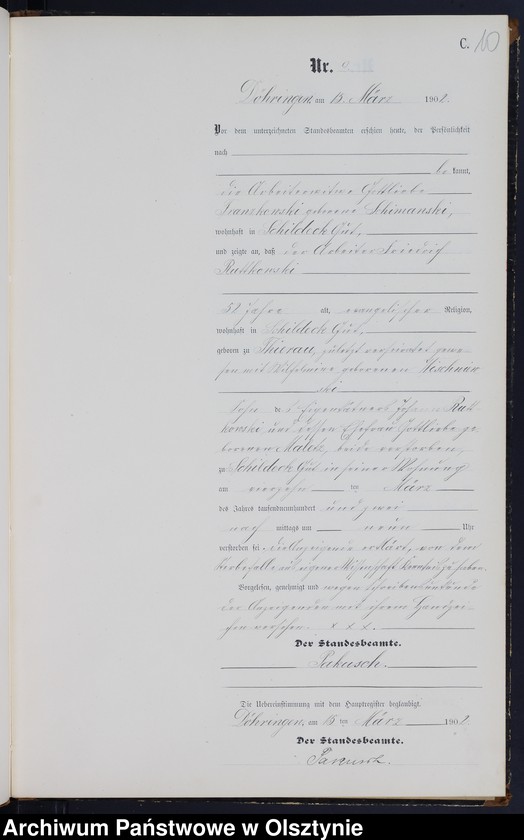 C. 10
Nr.
Döhringen, am 15. März 1902.
Vor dem unterzeichneten Standesbeamten erschien heute, der Persönlichkeit
nach
be kannt,
die Arbeiterwitwe Gottliebe
geborene Schimanski,
wohnhaft in Schildeck Gut,
und zeigte an, daß der Arbeiter Friedrich
Rutkowski
52 Jahre alt, evangelischer Religion,
wohnhaft in Schildeck Gut,
geboren zu Thierau, zuletzt verheiratet gewe-
sen mit Wilhelmine geborenen
ski
Sohn des Eigenkätners Johann Rut-
kowski und dessen Ehefrau Gottliebe ge-
borenen beide verstorben,
zu Schildeck Gut in seiner Wohnung
am vierzehn ten März
des Jahres tausendneunhundert und zwei
nach mittags um neun Uhr
verstorben sei. Die Anzeigende erklärt, von dem
Sterbefalle aus eigener Wissenschaft unterrichtet zu sein.
Vorgelesen, genehmigt und wegen Schreibensunkunde
der Anzeigenden mit ihrem Handzei-
chen versehen. x x x.
Der Standesbeamte.
Die Uebereinstimmung mit dem Hauptregister beglaubigt.
Döhringen, am 15 ten März 1902.
Der Standesbeamte.
Archiwum Państwowe w Olsztynie